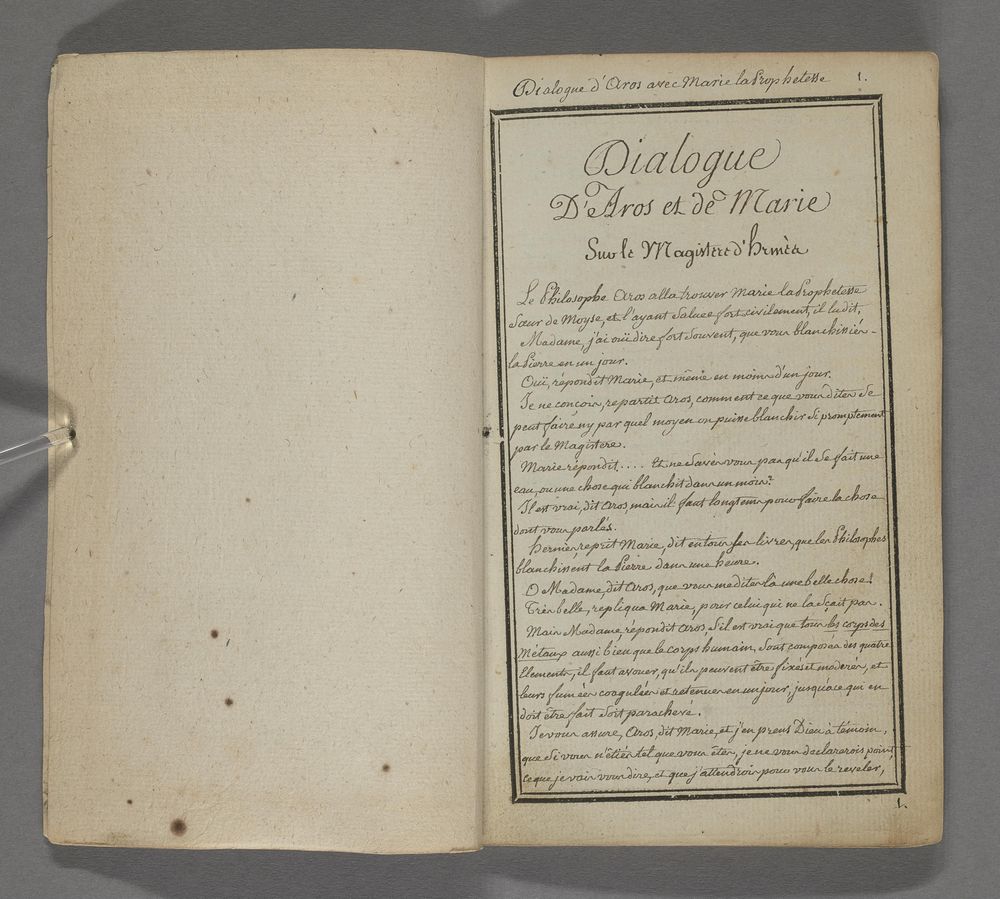 Dialogue d'Aros avec Marie la Prophetesse 1.
Dialogue
D'Aros et de Marie
Sur le Magistere d'hermès
Le Philosophe Aros alla trouver Marie la Prophetesse
Sœur de Moyse, et l'ayant saluee fort civilement, il lui dit.
Madame, j'ai ouï dire fort souvent, que vous blanchissiés
la Pierre en un jour.
Ouï, répondit Marie, et même en moins d'un jour.
Je ne conçois, repartit Aros, comment ce que vous dites se
peut faire ny par quel moyen on puisse blanchir si promptement
par le Magistere.
Marie répondit.... Et ne savés vous pas qu'il se fait une
eau, ou une chose qui blanchit dans un mois?
Il est vrai, dit Aros, mais il faut longtems pour faire la chose
dont vous parlés.
hermes, reprit Marie, dit en tous ses livres, que les Philosophes
blanchissent la Pierre dans une heure.
O Madame, dit Aros, que vous me dites là une belle chose!
Très belle, repliqua Marie, pour celui qui ne la scait pas.
Mais Madame, répondit Aros, s'il est vrai que tous les corps des
Métaux aussi bien que le corps humain, sont composés des quatre
Elements, il faut avouer, qu'ils peuvent être fixes et moderés, et
leurs fumées coagulées et retenues en un jour, jusqu'a ce qui en
doit être fait soit parachevé.
Je vous assure, Aros, dit Marie, et j'en prens Dieu à témoin,
que si vous n'étiés tel que vous êtes, je ne vous declarerois point
ce que je vais vous dire, et que j'attendrois pour vous le reveler,
1.